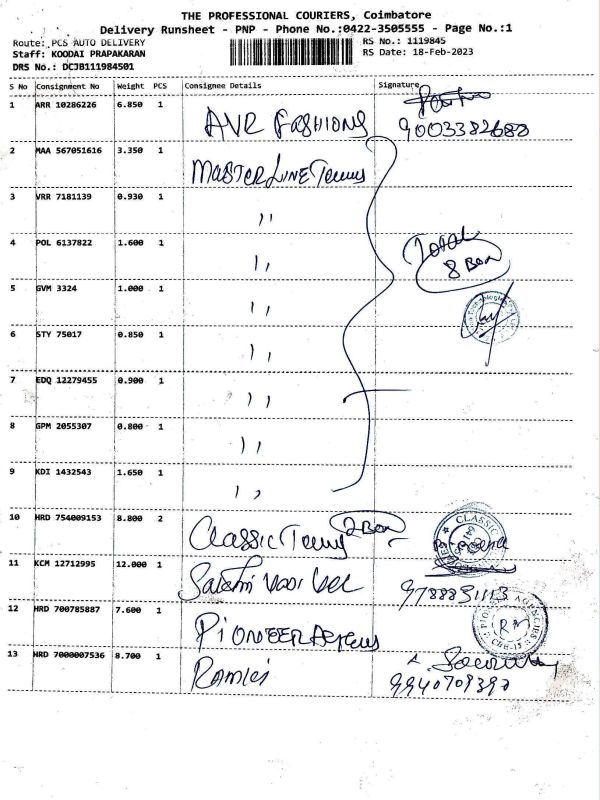 THE PROFESSIONAL COURIERS, Coimbatore
Delivery Runsheet - PNP - Phone No.:0422-3505555 - Page No.:1
Route: PCS AUTO DELIVERY
Staff: KOODAI PRAPAKARAN
DRS No.: DCJB111984501
RS No.: 1119845
RS Date: 18-Feb-2023
S No Consignment No Weight PCS Consignee Details Signature
1 ARR 10286226 6.850 1 AVR FASHIONS
9003382682
2 MAA 567051616 3.350 1 MASTER LINE
3 VRR 7181139 0.930 1 ,,
4 POL 6137822 1.600 1 ,, Total
8 Box
5 GVM 3324 1.000 1 ,,
6 STY 75017 0.850 1 ,,
7 EDQ 12279455 0.900 1 ,,
8 GPM 2055307 0.800 1 ,,
9 KDI 1432543 1.650 1 ,,
10 HRD 754009153 8.800 2 CLASSIC 2 Box
CLASSIC
11 KCM 12712995 12.000 1 Sakthi
12 HRD 700785887 7.600 1 PIONEER
PIONEER AGENCIES
CBE-12
13 HRD 7000007536 8.700 1
9940709390